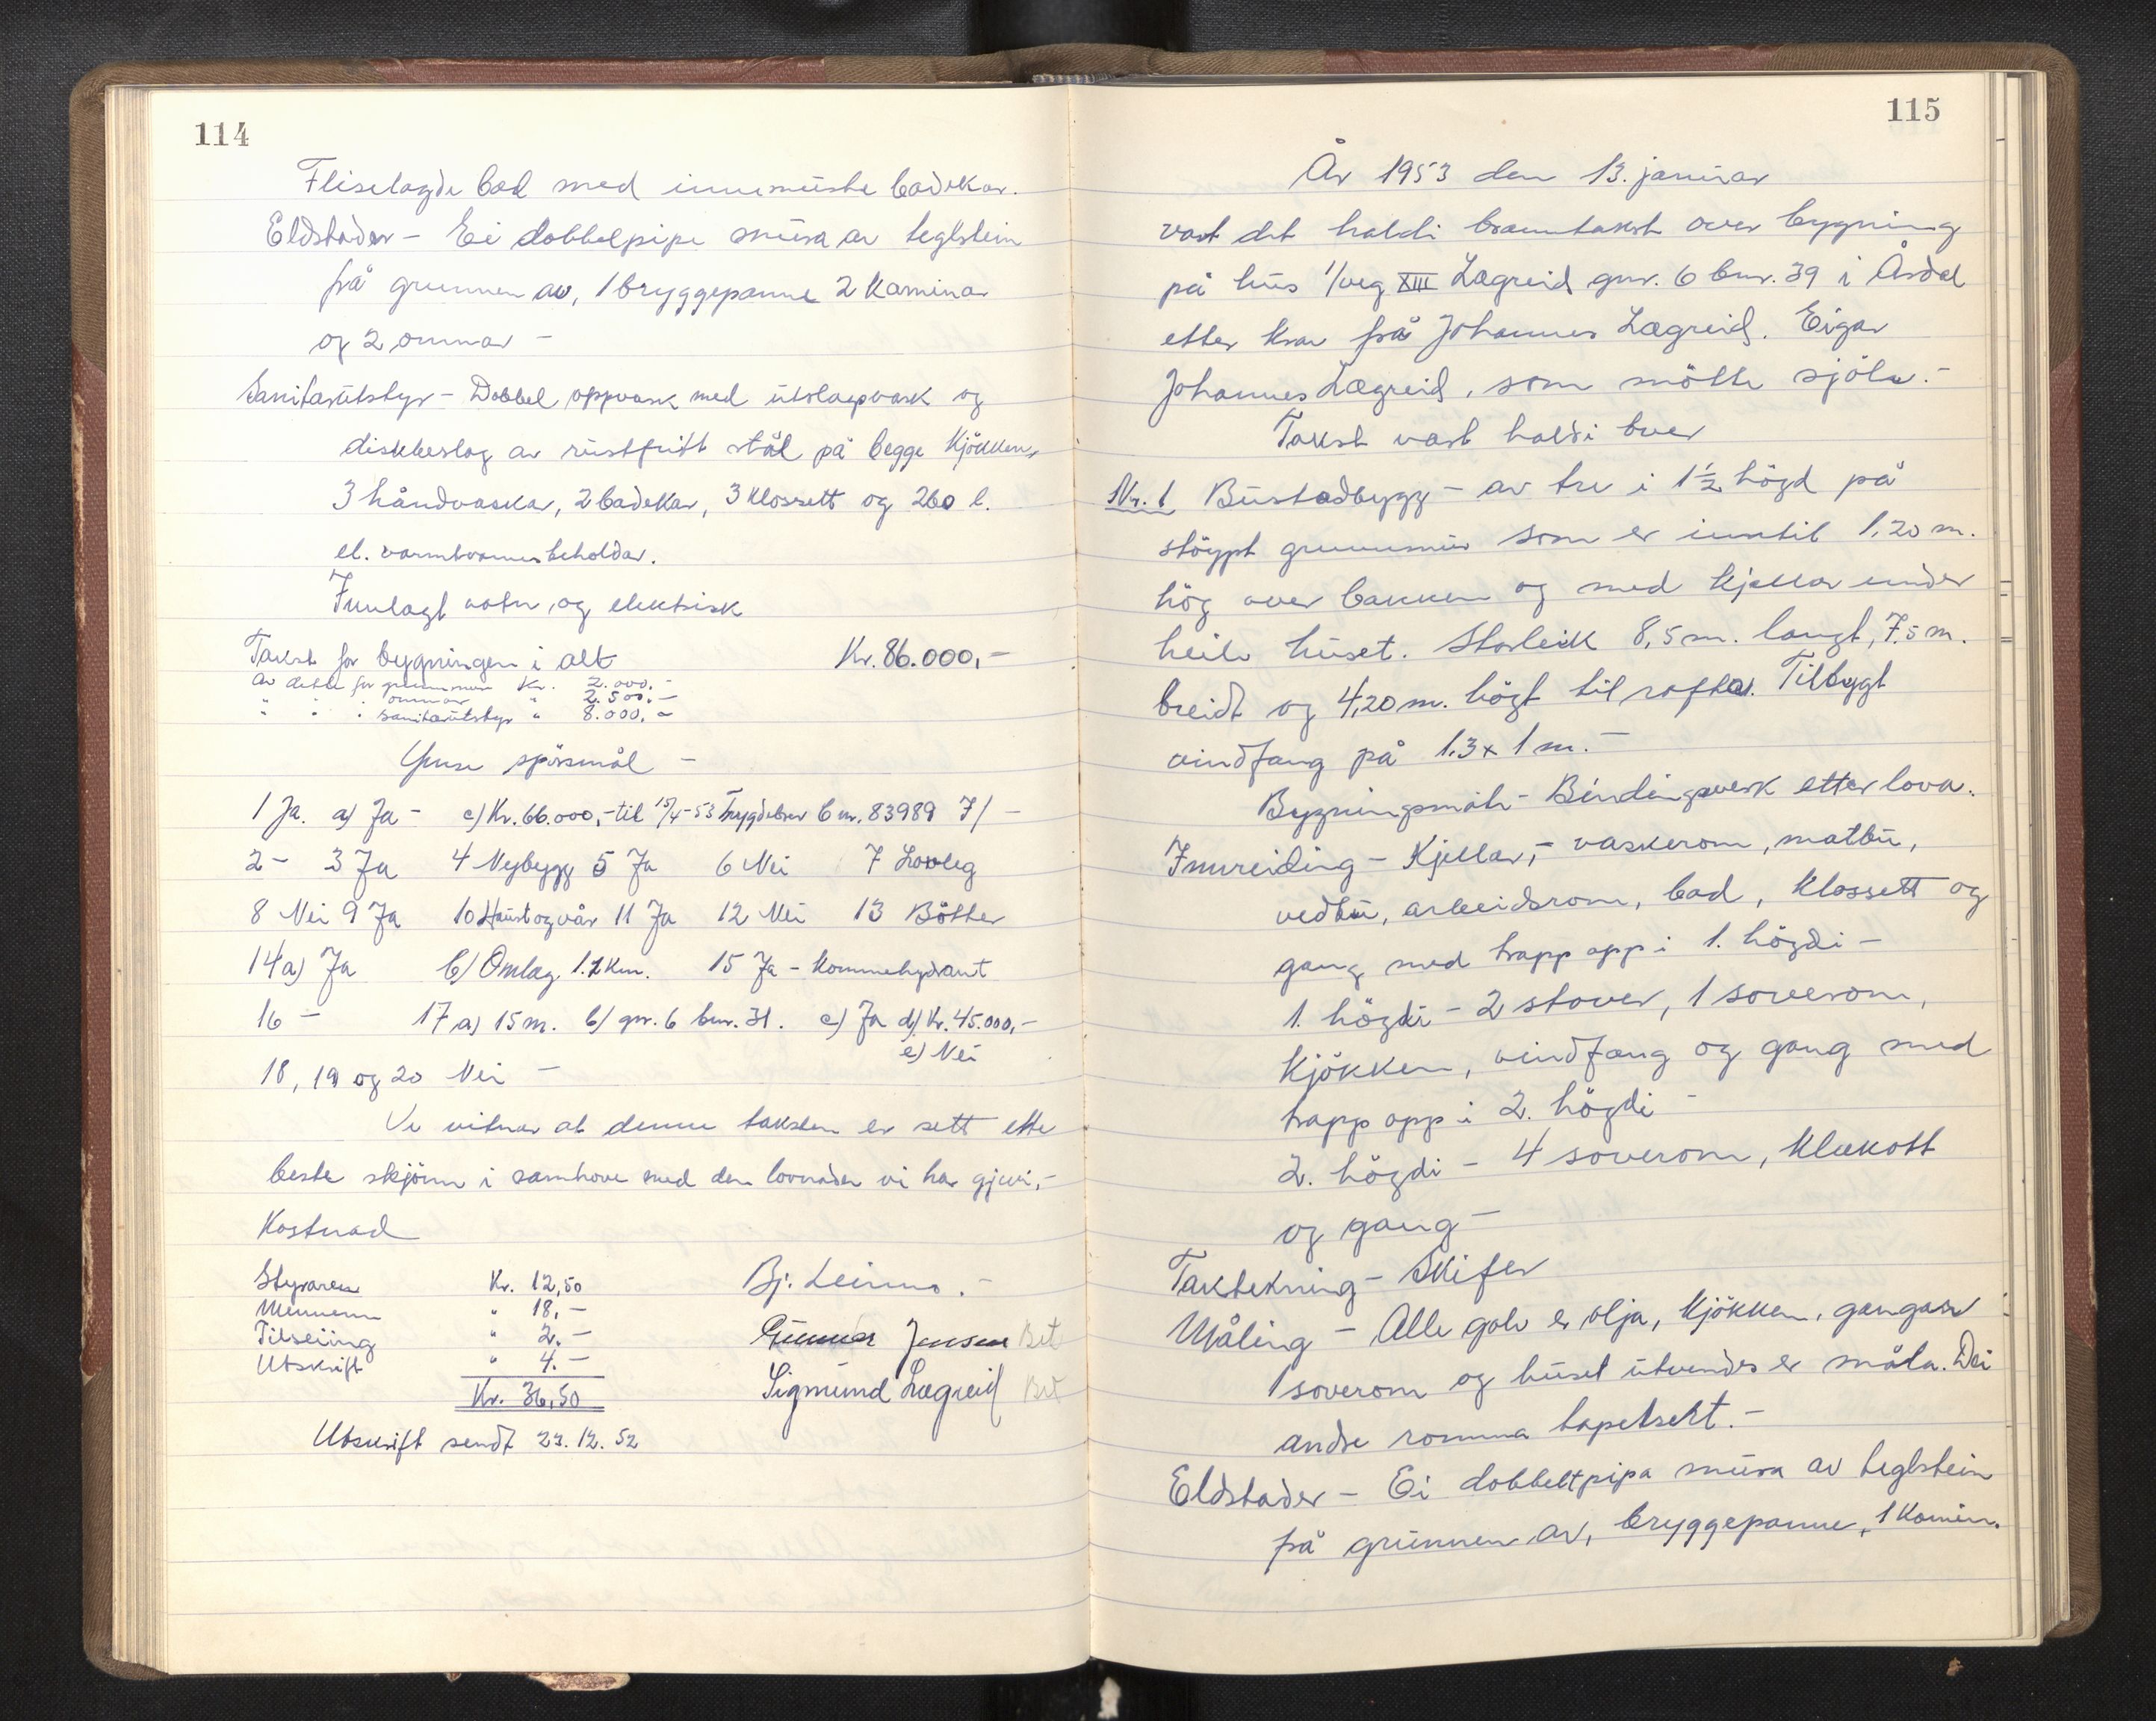 114
Fliselagde bad med innemurte badekar.
Eldstader - Ei dobbelpipe mura av teglstein
frå grunnen av, 1 bryggepanne 2 Kaminar
og 2 omnar -
Sanitærutstyr - Dobbel oppvask med utslagsvask og
diskbeslag av rustfritt stål på begge Kjökken,
3 håndvaskar, 2 badekar, 3 Klossett og 260 l.
el. varmtvannsbeholdar.
Innlagt vatn og elektrisk
Takst for bygningen i alt Kr. 86.000,-
Av dette for grunnmur Kr. 2.000,-
" " " omnar " 2.500,-
" " " sanitærutstyr " 8.000,-
Ymse spörsmål -
1 Ja. a) Ja - c) Kr. 66.000,- til 15/4-53 Trygdebrev b nr. 83989 7/ -
2 - 3 Ja 4 Nybygg 5 Ja 6 Nei 7 Lovleg
8 Nei 9 Ja 10 Haust og vår 11 Ja 12 Nei 13 Bötter
14 a) Ja b) Omlag 1.2 Km. 15 Ja - Kommehydrant
16 - 17 a) 15 m. b) gnr. 6 bnr. 31. c) Ja d) Kr. 45.000,-
e) Nei
18, 19 og 20 Nei -
Vi vitnar at denne taksten er sett ette
beste skjönn i samhove med den lovnader vi har gjevi,-
Kostnad
Styraren Kr. 12,50 Bj. Leirmo. -
Mennene " 18,-
Tilseiing " 2.- Gunnar Jensen Bet
Utskrift " 4.-
Kr. 36,50 Sigmund Lægreid Bet
Utskrift sendt 23.12.52
115
År 1953 den 13. januar
vart det haldi branntakst over bygning
på hus 1/veg XIII Lægreid gnr. 6 bnr. 39 i Årdal
etter krav frå Johannes Lægreid. Eigar
Johannes Lægreid, som mötte sjölv.-
Takst vart haldi over
Nr. 1 Bustadbygg - av tre i 1½ högd på
stöypt grunnmur som er inntil 1,20 m.
hög over bakken og med kjellar under
heile huset. Storleik 8,5 m. langt, 7.5 m.
breidt og 4,20 m. högt til raftar. Tilbygt
vindfang på 1.3 x 1 m. -
Bygningsmåte - Bindingsverk etter lova.
Innreiding - Kjellar,- vaskerom, matbu,
vedbu, arbeidsrom, bad, Klossett og
gang med trapp opp i 1. högdi -
1. högdi - 2 stover, 1 soverom,
Kjökken, vindfang og gang med
trapp opp i 2. högdi -
2. högdi - 4 soverom, Klekott
og gang -
Taktekning - Skifer
Måling - Alle golv er olja, Kjökken, gangar
1 soverom og huset utvendes er måla. Dei
andre romma tapetsert. -
Eldstader - Ei dobbeltpipa mura av teglstein
frå grunnen av, bryggepanne, 1 Kamin.